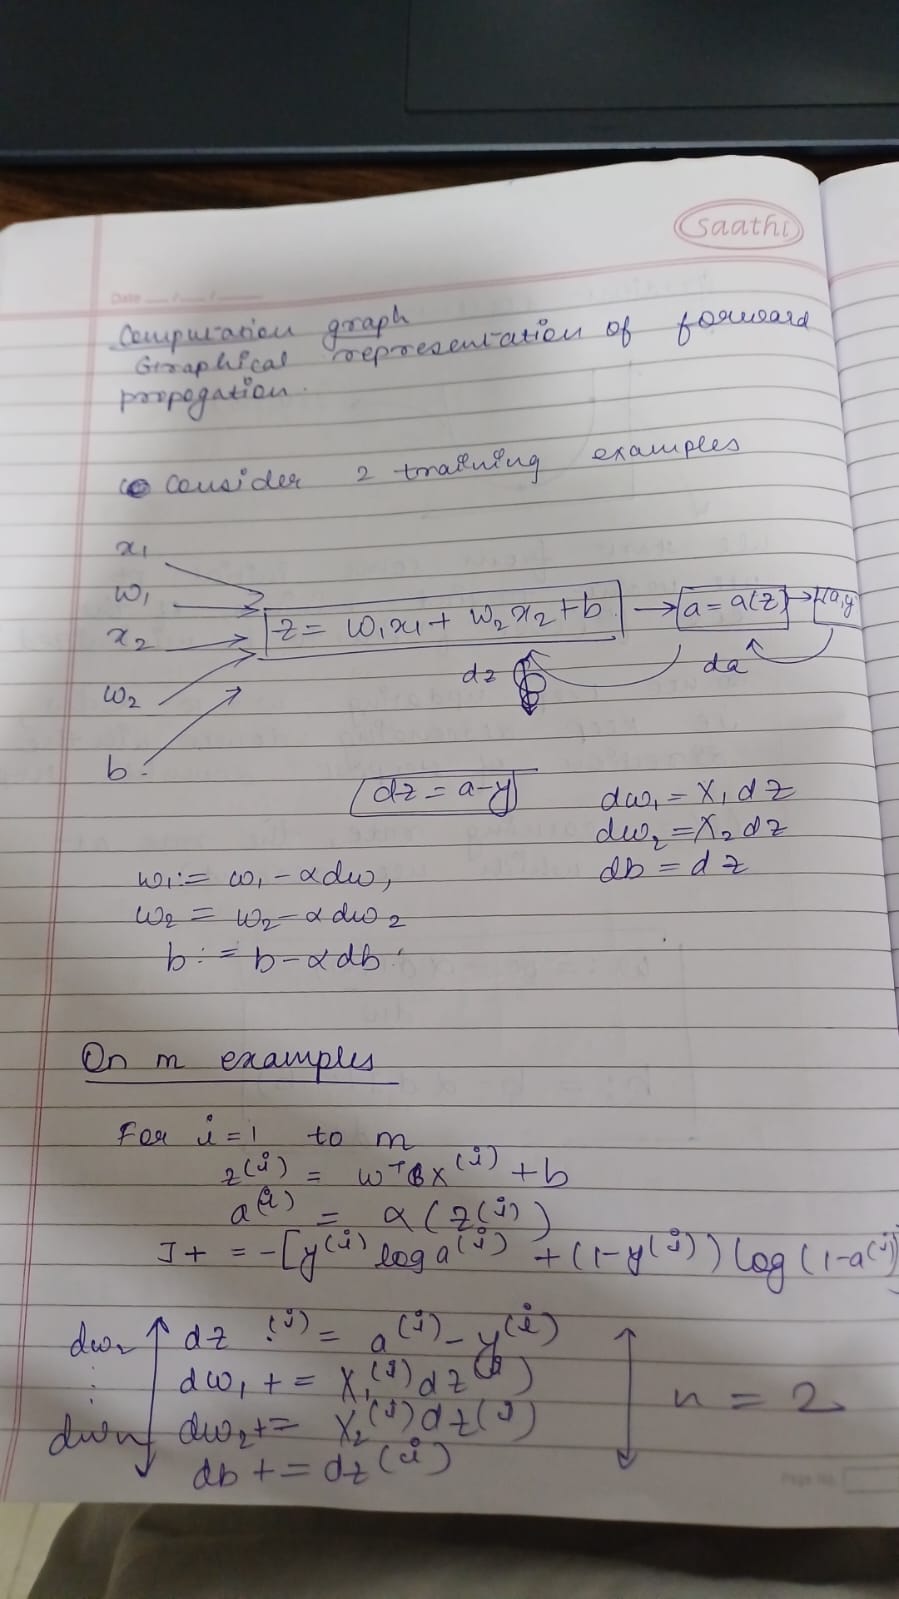 saathi
Date __/__/__
Computation graph
Graphical representation of forward
propogation.
Consider 2 training examples
x₁
w₁
x₂
w₂
b
z = w₁x₁ + w₂x₂ + b → a = a(z) →
dz da
dz = a-y
dw₁ = X₁dz
dw₂ = X₂dz
db = dz
w₁ := w₁ - αdw,
w₂ = w₂ - αdw₂
b := b - αdb
On m examples
For i = 1 to m
z⁽ⁱ⁾ = wᵀx⁽ⁱ⁾ + b
a⁽ⁱ⁾ = α(z⁽ⁱ⁾)
J+ = -[y⁽ⁱ⁾ log a⁽ⁱ⁾ + (1-y⁽ⁱ⁾) log(1-a⁽ⁱ⁾
dw₂ dz⁽ⁱ⁾ = a⁽ⁱ⁾ - y⁽ⁱ⁾
⋮ dw₁ + = X₁⁽ⁱ⁾dz⁽ⁱ⁾ n = 2
dwn dw₂ += X₂⁽ⁱ⁾dz⁽ⁱ⁾
db += dz⁽ⁱ⁾
Page No.